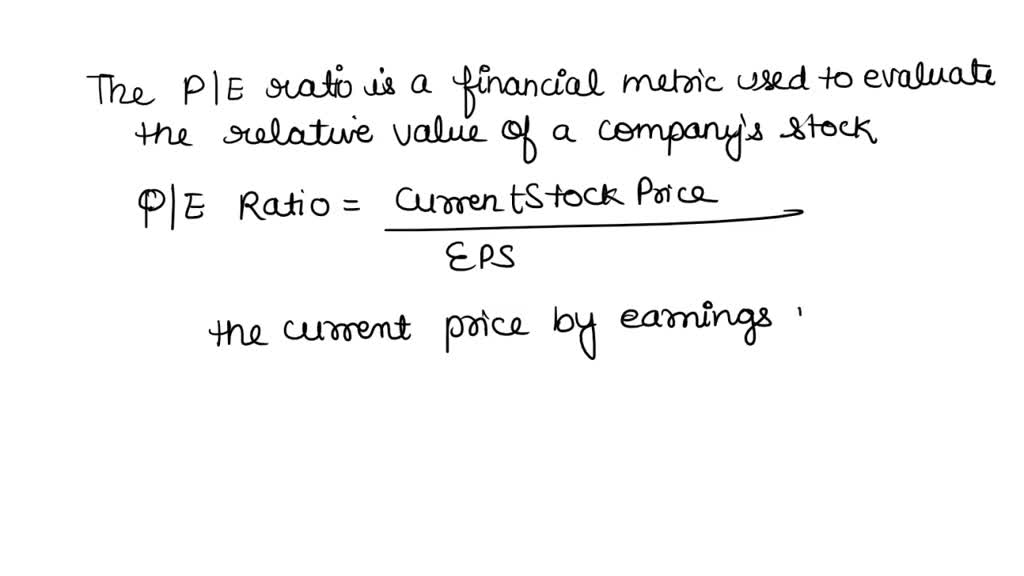 The P|E ratio is a financial metric used to evaluate
the relative value of a company's stock
P|E Ratio = Current Stock Price
EPS
the current price by earnings